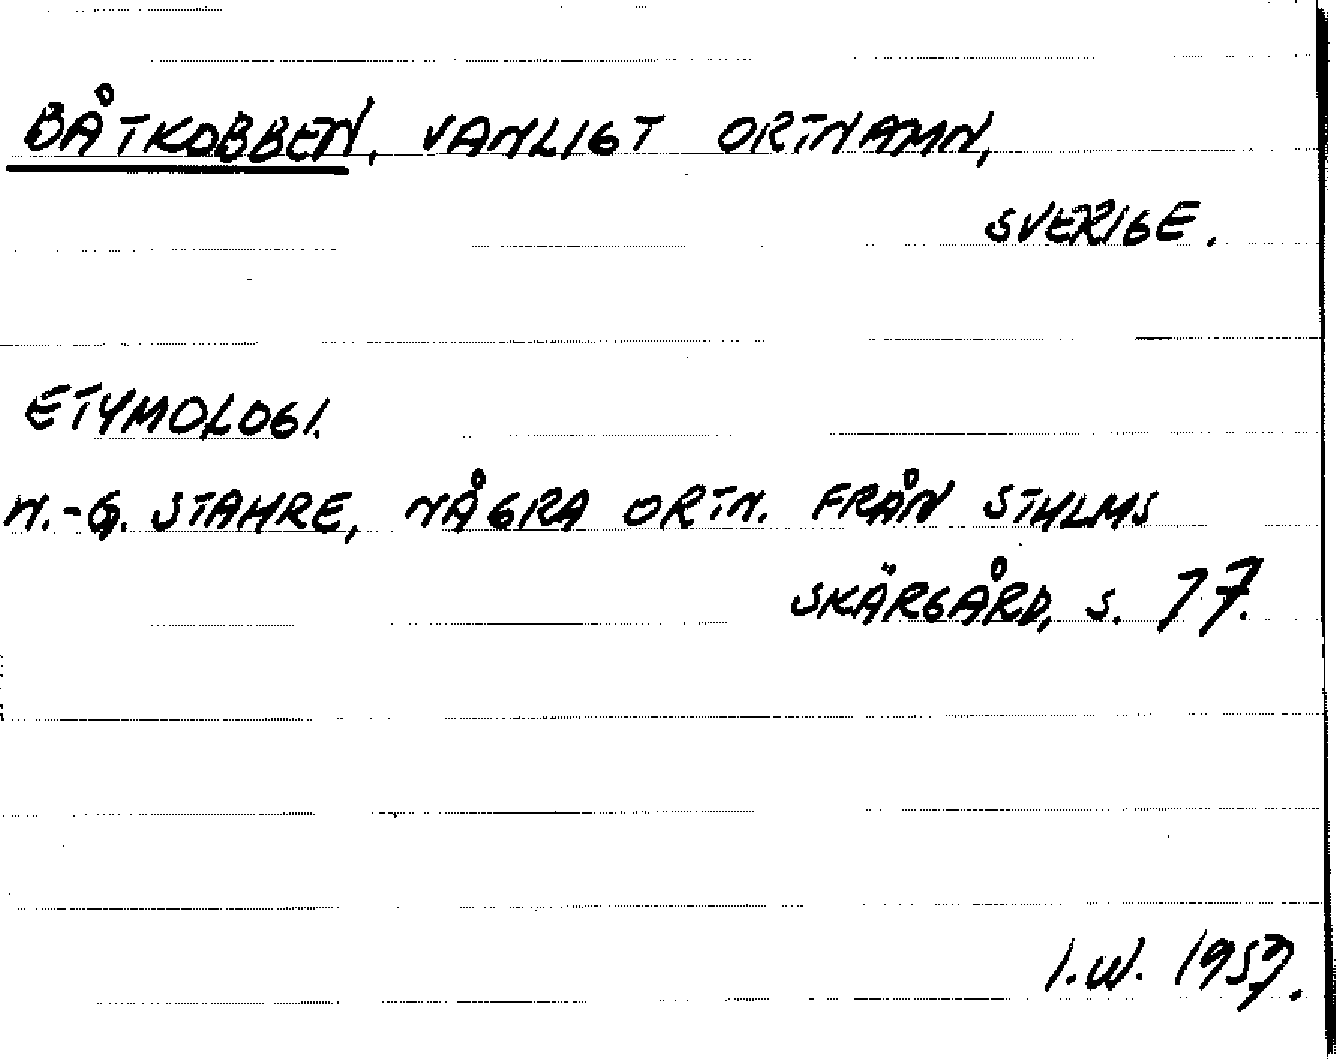 BÅTKOBBEN, VANLIGT ORTNAMN,
SVERIGE.
ETYMOLOGI.
N.-G. STAHRE, NÅGRA ORTN. FRÅN STHLMS
SKÄRGÅRD, S. 77.
I.W. 1959.